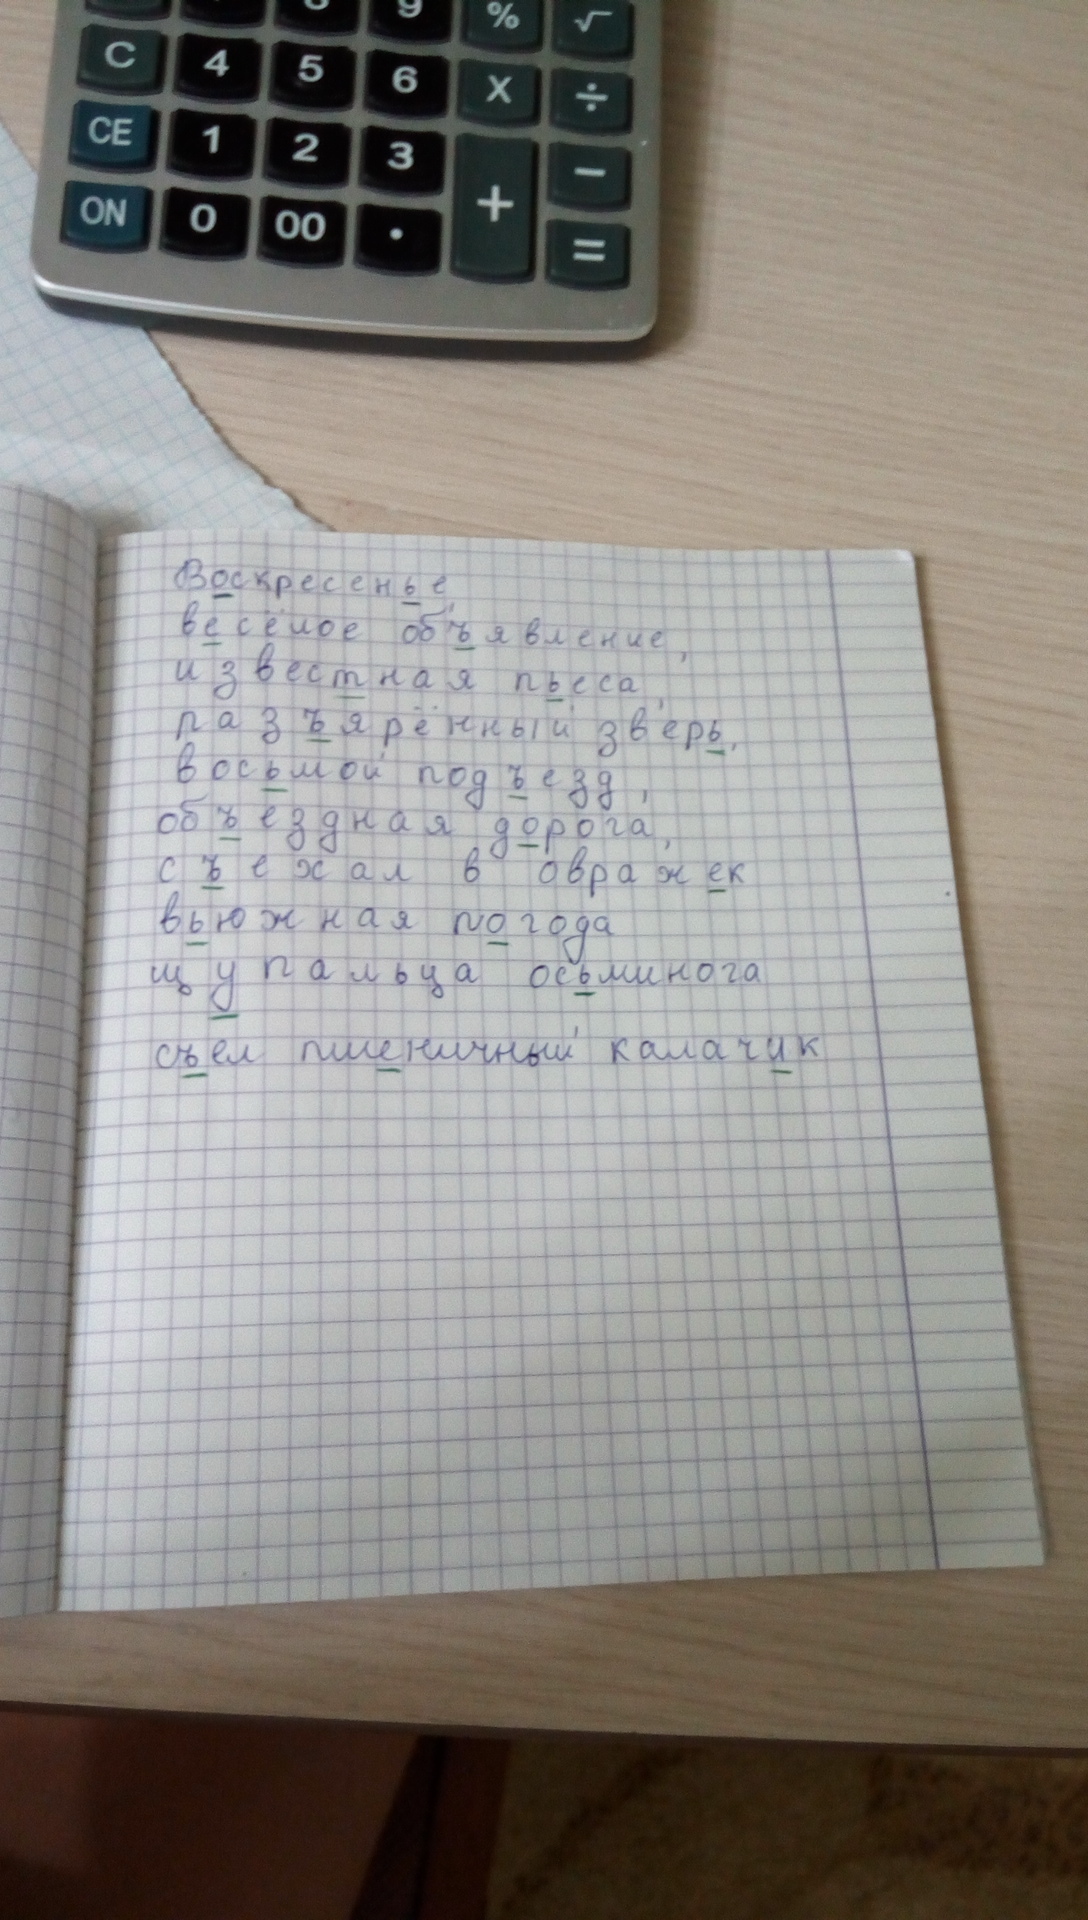 8 9 % √
C 4 5 6 X ÷
CE 1 2 3 −
ON 0 00 . + =
Воскресенье,
весёлое объявление,
известная пьеса,
разъярённый зверь,
восьмой подъезд,
объездная дорога,
съехал в овражек
вьюжная погода
щупальца осьминога
съел пшеничный калачик